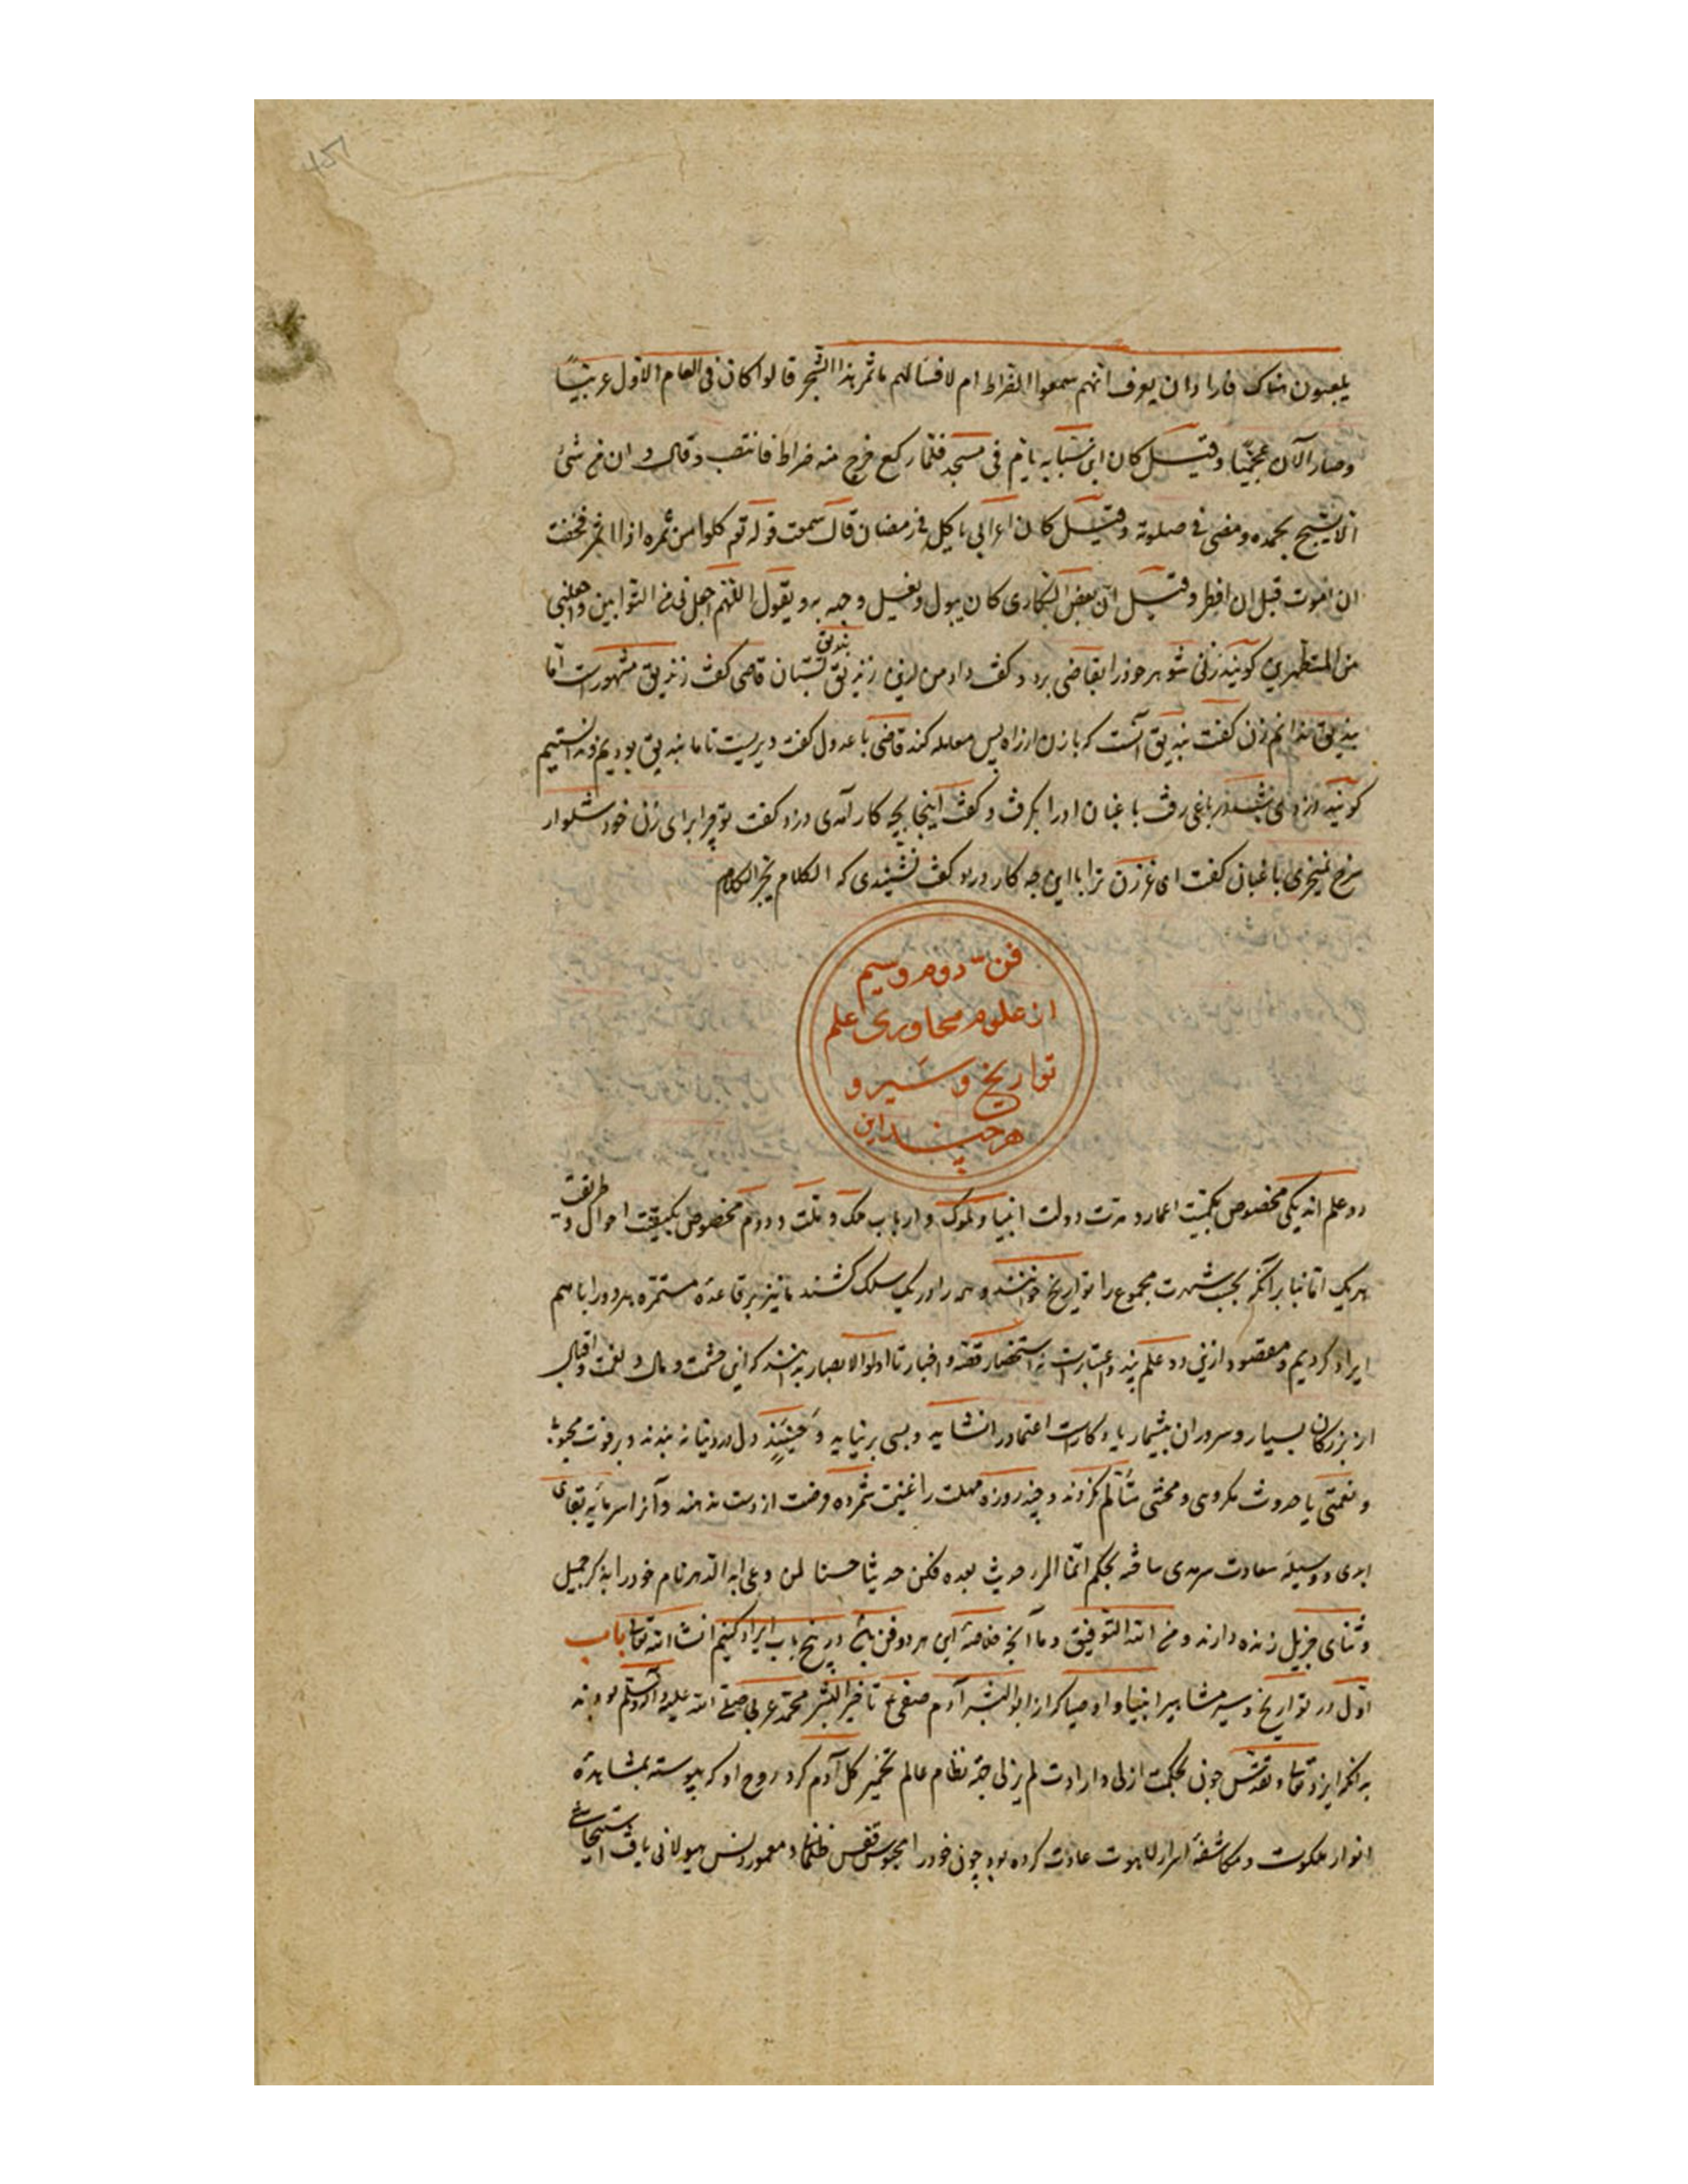 یلعبون هناک فاراد ان یعرف انهم سمعوا الضراط ام لا فسالهم ما ثمر هذا الشجر قالوا کان فی العام الاول عربیّاً
وصار الآن عجمیّا وقیل کان ابن شبابه یاتم فی مسجد فلمّا رکع خرج منه ضراط فانتصب وقال و ان من شیٔ
الا یسبح بحمده ومضی فی صلوته وقیل کان اعرابی یاکل فی رمضان قال سمعت قوله تع کلوا من ثمره اذا اثمر فخفت
ان اموت قبل ان افطر وقیل ان بعض السکاری کان یبول ویغسل وجهه به ویقول اللهم اجعلنی من التوابین واجعلنی
من المتطهرین گویند زنی شوهر خود را بقاضی برد و گفت داد من ازین زندیق بستان قاضی گفت زندیق مشهورست اما
بندیق
بندیق ندانم زن گفت بندیق آنست که با زن از راه پس معامله کند قاضی با عدول گفت دیریست تا ما بندیق بودیم و ندانستیم
گویند دزدی در باغی رفت باغبان او را بگرفت و گفت اینجا بچه کار آمدی دزد گفت تو چرا برای زن خود شلوار
سرخ نمیخری باغبان گفت ای غرزن ترا با این چه کار دزد گفت نشنیدی که الکلام یجر الکلام
فن دوم و سیم
از علوم محاوری علم
تواریخ و سیر و
هر چند این
دو علم اند یکی مخصوص بکمیت اعمار و مدت دولت انبیا و ملوک و ارباب ملک و ملت و دوم مخصوص بکیفیت احوال و طریقت
هر یک اما بنا بر آنکه بحسب شهرت مجموع را تواریخ خوانند و همه را در یک سلک کشند ما نیز بر قاعدهٔ مستمره هر دو را با هم
ایراد کردیم و مقصود ازین دو علم پند و اعتبارست نه استحضار قصه و اخبار تا اولوالابصار بدانند که این حشمت و مال و نعمت و اقبال
از بزرگان بسیار و سروران بیشمار یادگارست اعتماد را نشاید و بسی برنیاید و حینئذ دل در دنیا نه بندند و بر فوت محبوبی
و نعمتی یا حدوث مکروهی و محنتی متألم نگردند و چند روزه مهلت را غنیمت شمرده فرصت از دست ندهند و آنرا سرمایه بقای
ابدی و وسیله سعادت سرمدی ساخته بحکم انّما المرء حدیث بعده فکن حدیثا حسنا لمن وعی ابد الدهر نام خود را بذکر جمیل
و ثنای جزیل زنده دارند و من الله التوفیق و ما آنچه خلاصهٔ این هر دو فن است در پنج باب ایراد کنیم انشا الله تعالی باب
اول در تواریخ و سیر مشاهیر انبیا و اوصیا که از ابو البشر آدم صفی ع تا خیر البشر محمد عربی صلی الله علیه و آله وسلم بودند
بدانکه ایزد تعالی و تقدس چون بحکمت ازلی و ارادت لم یزلی جهة نظام عالم تخمیر گل آدم کرد روح او که پیوسته بمشاهدهٔ
انوار ملکوت و مکاشفهٔ اسرار لاهوت عادت کرده بود چون خود را محبوس قفس ظلمانی و هیولانی یافت